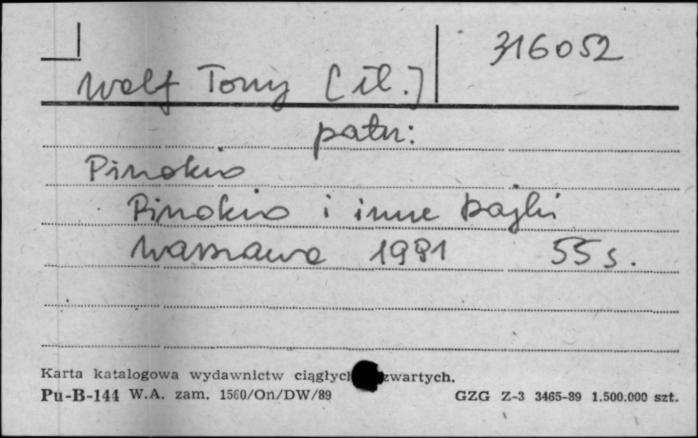 316052
Wolf Tony [il.]
patrz:
Pinokio
Pinokio i inne bajki
Warszawa 1981 55 s.
Karta katalogowa wydawnictw ciągłych zwartych.
Pu-B-144 W.A. zam. 1560/On/DW/89 GZG Z-3 3465-89 1.500.000 szt.